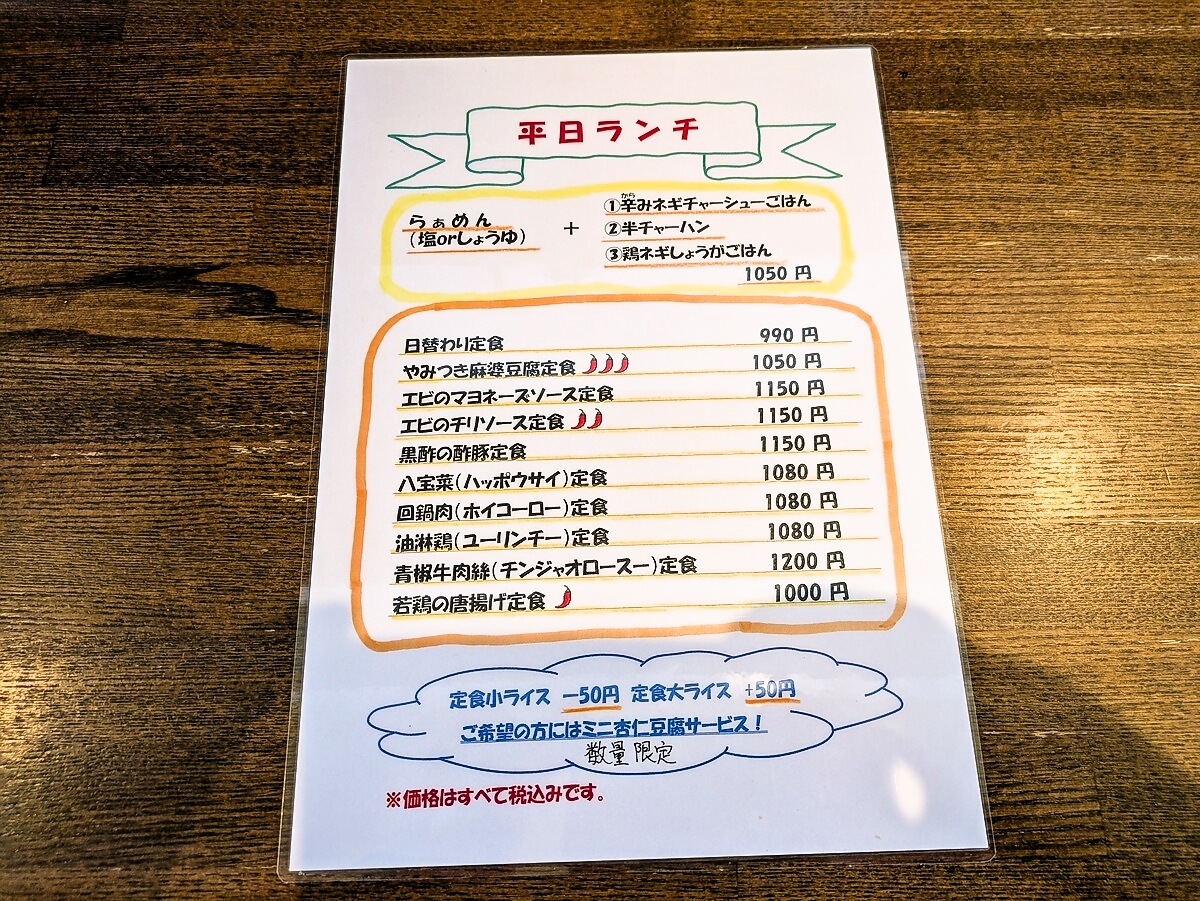 平日ランチ
らぁめん
(塩orしょうゆ)
+
①辛みネギチャーシューごはん
から
②半チャーハン
③鶏ネギしょうがごはん
1050 円
日替わり定食 990 円
やみつき麻婆豆腐定食 1050 円
エビのマヨネーズソース定食 1150 円
エビのチリソース定食 1150 円
黒酢の酢豚定食 1150 円
八宝菜(ハッポウサイ)定食 1080 円
回鍋肉(ホイコーロー)定食 1080 円
油淋鶏(ユーリンチー)定食 1080 円
青椒牛肉絲(チンジャオロースー)定食 1200 円
若鶏の唐揚げ定食 1000 円
定食小ライス －50円 定食大ライス +50円
ご希望の方にはミニ杏仁豆腐サービス！
数量限定
※価格はすべて税込みです。